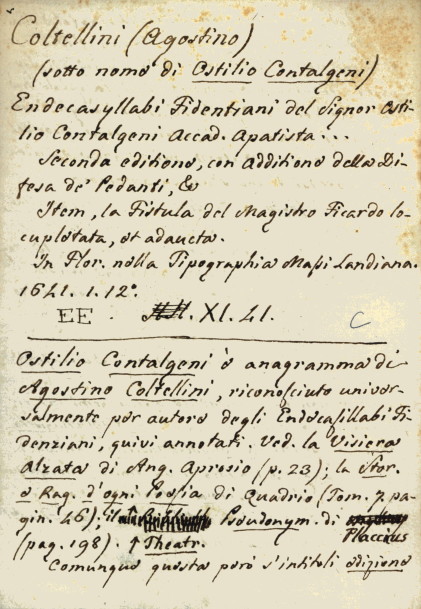 Coltellini (Agostino)
(sotto nome di Ostilio Contalgeni)
Endecasyllabi Fidentiani del Signor Osti-
lio Contalgeni Accad. Apatista...
Seconda editione, con additione della Di-
fesa de' Pedanti, &
Item, la Fistula del Magistro Ficardo lo-
cupletata, et adaucta.
In Flor. nella Tipographia Massi Landiana.
1641. 1. 12°.
EE . XI. 41. C
Ostilio Contalgeni è anagramma di
Agostino Coltellini, riconosciuto univer-
salmente per autore degli Endecasillabi Fi-
denziani, quivi annotati. Ved. la Visiera
Alzata di Ang. Aprosio (p. 23); la Stor.
e Rag. d'ogni Poesia di Quadrio (Tom. 7. pa-
gin. 46); il Pseudonym. di Placcius
(pag. 198). † Theatr.
Comunque questa però s'intitoli edizione